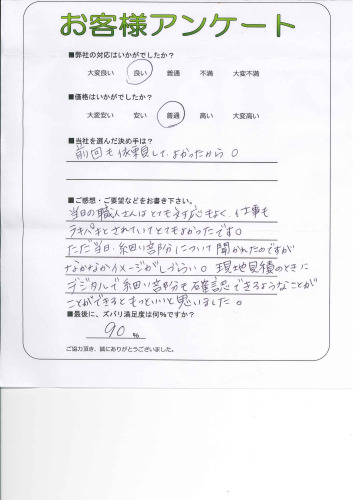 お客様アンケート
■弊社の対応はいかがでしたか?
大変良い 良い 普通 不満 大変不満
■価格はいかがでしたか?
大変安い 安い 普通 高い 大変高い
■当社を選んだ決め手は?
前回も依頼して、よかったから。
■ご感想・ご要望などをお書き下さい。
当日の職人さんはとても対応もよく、仕事も
テキパキとされていてとてもよかったです。
ただ当日、細い部分について聞かれたのですが
なかなかイメージがしづらい。現地見積のときに
デジタルで細い部分も確認できるようなことが
ことができるともっといいと思いました。
■最後に、ズバリ満足度は何%ですか?
90 %
ご協力頂き、誠にありがとうございました。